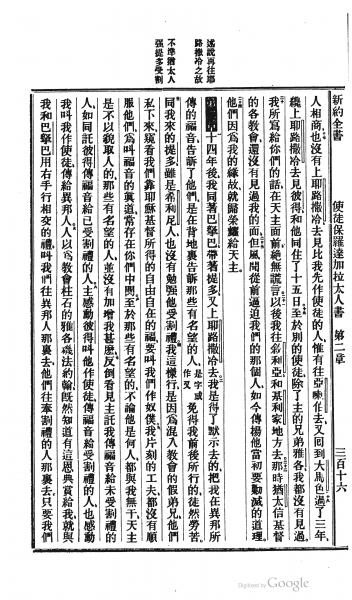 新約全書 使徒保羅達加拉太人書 第二章 三百十六
述說再往耶
路撒冷之故
不準猶太人
强提多受割
人相商也沒有上耶路撒冷去見比我先作使徒的人惟有往亞喇伯去又回到大馬色過了三年
纔上耶路撒冷去見彼得和他同住了十五日至於別的使徒除了主的兄弟雅各我都沒有見過
我所寫給你們的話在天主面前絕無謊言以後我往叙利亞和基利家地方去那時猶太信基督
的各教會還沒有見過我的面但風聞從前逼迫我們的那個人如今傳揚他當初要勦滅的道理
他們因爲我的緣故就歸榮耀給天主
第二章 十四年後我同著巴拏巴帶著提多又上耶路撒冷去我是得了默示去的把我在異邦所
傳的福音告訴了他們是在背地裏告訴那些有名望的人是字或作又免得我前後所行的徒然勞苦
同我來的提多雖是希利尼人也沒有勉强他受割禮我這樣行是因爲混入教會的假弟兄他們
私下來窺看我們靠耶穌基督所得的自由自在的福要叫我們作奴僕我片刻的工夫都沒有順
服他們爲叫福音的眞道常存在你們中間至於那些有名望的不論他是何人都與我無干天主
是不以貌取人的那些有名望的人並沒有加增我甚麽倒看見主託我傳福音給未受割禮的
人如同託彼得傳福音給已受割禮的人主感動彼得叫他作使徒傳福音給受割禮的人也感動
我叫我作使徒傳給異邦人以爲教會柱石的雅各磯法約翰旣然知道有這恩典賞給我就與
我和巴拏巴用右手行相交的禮叫我們往異邦人那裏去他們往奉割禮的人那裏去只要我們
Digitized by Google